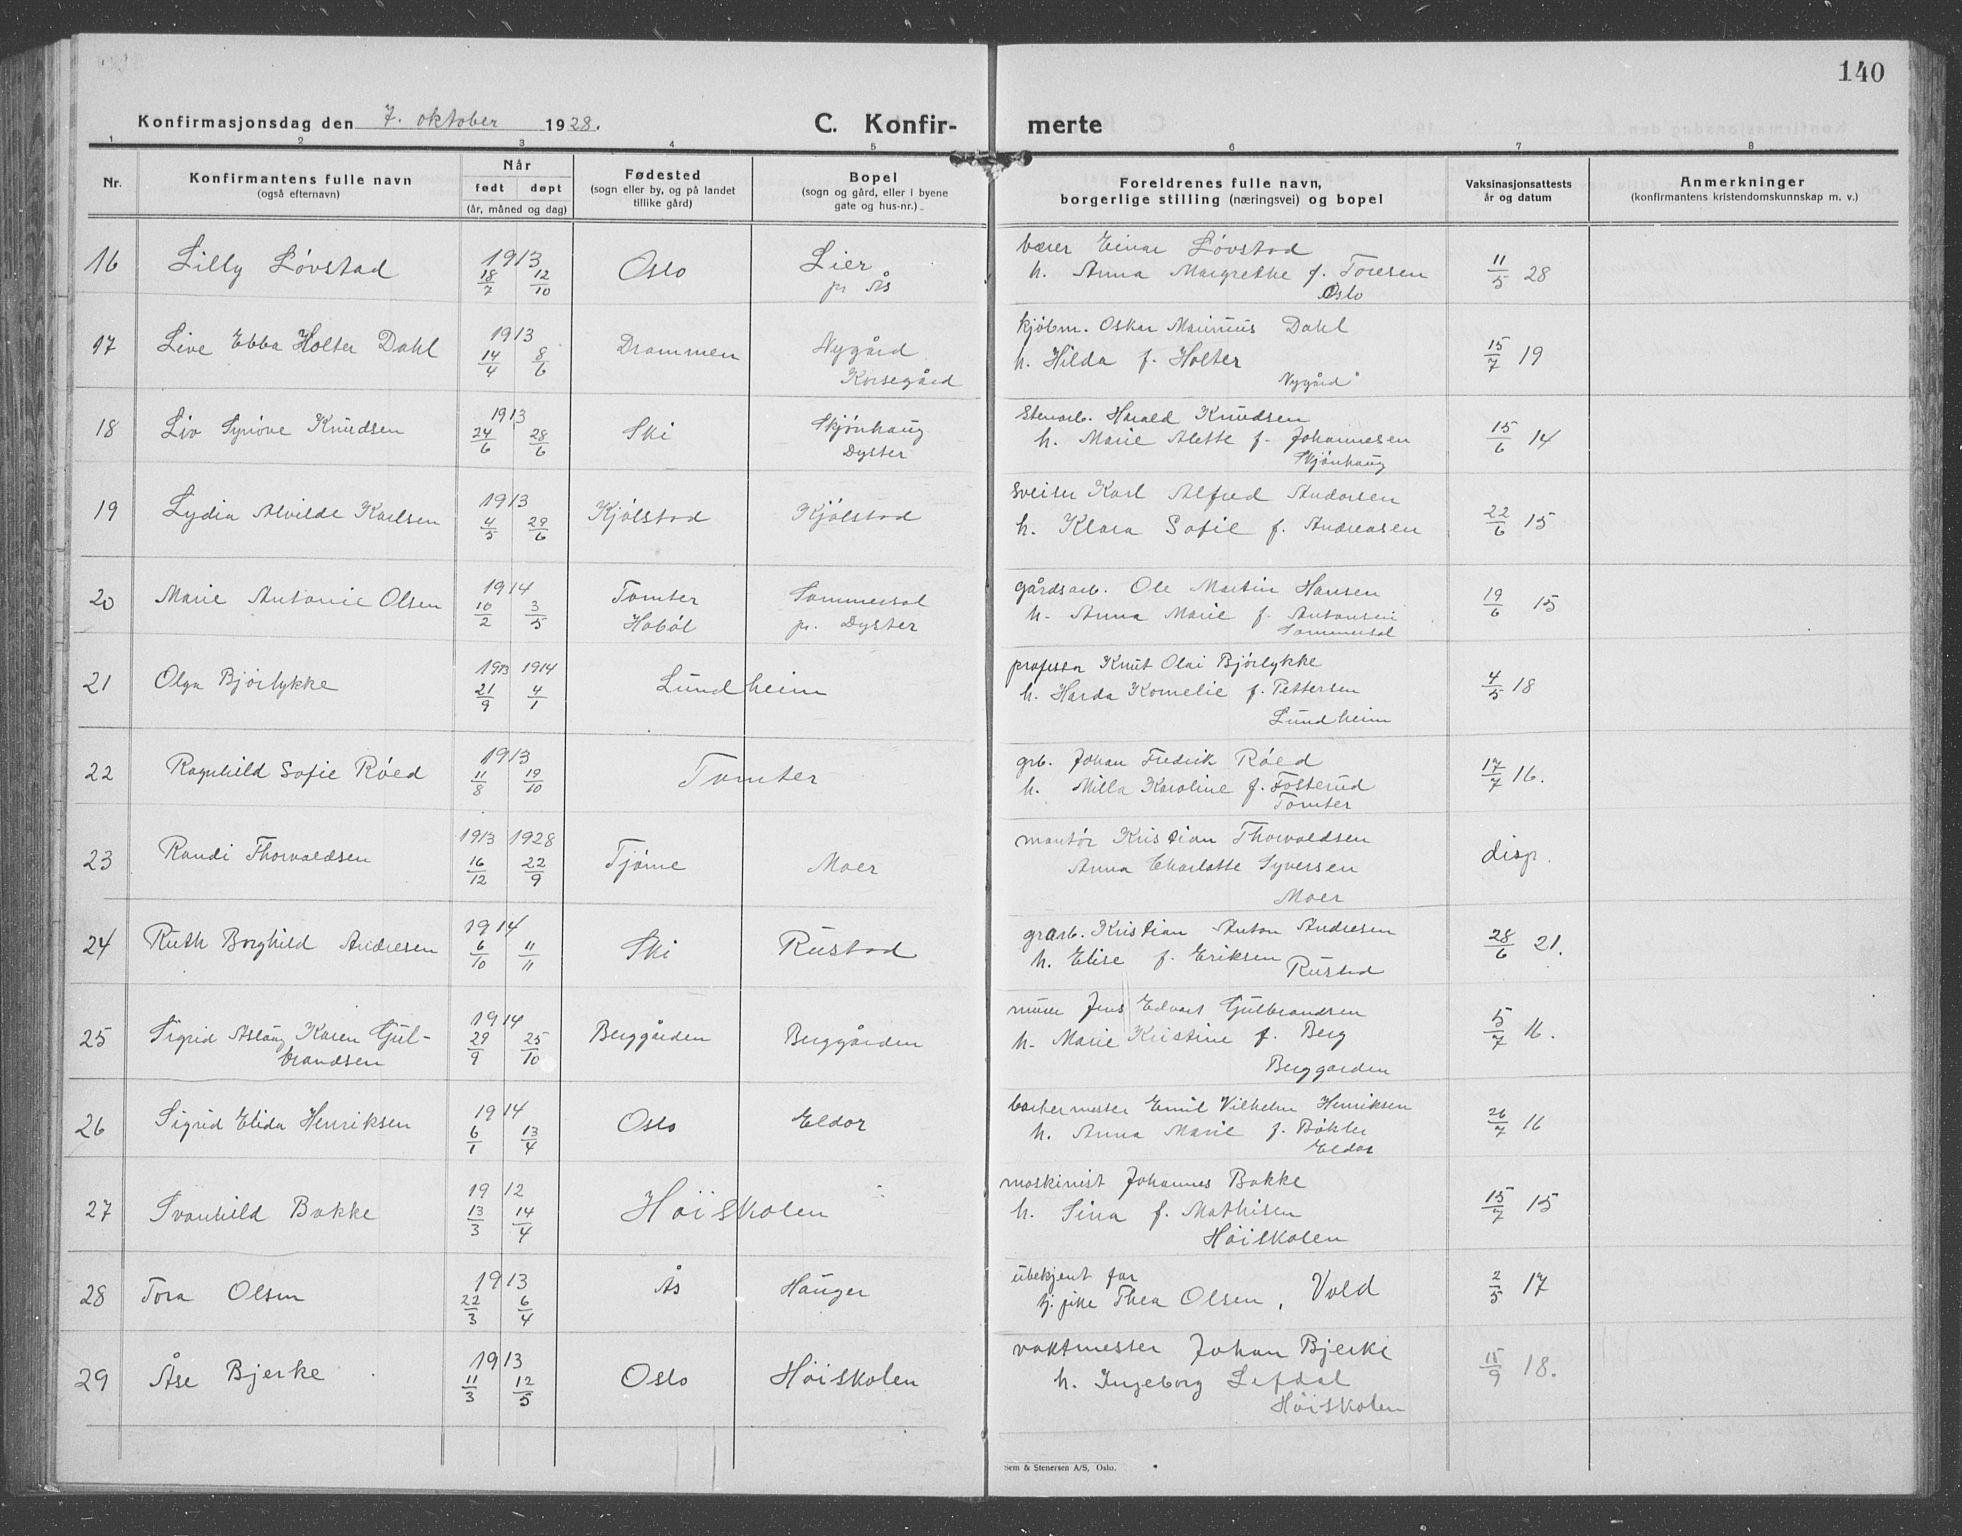 140
Konfirmasjonsdag den 7. oktober 1928.
C. Konfir-merte
1 2 3 4 5 6 7 8
Nr.
Konfirmantens fulle navn
(også efternavn)
Når
født døpt
(år, måned og dag)
Fødested
(sogn eller by, og på landet
tillike gård)
Bopel
(sogn og gård, eller i byene
gate og hus-nr.)
Foreldrenes fulle navn,
borgerlige stilling (næringsvei) og bopel
Vaksinasjonsattests
år og datum
Anmerkninger
(konfirmantens kristendomskunnskap m. v.)
16 Lilly Løvstad 1913 18/7 12/10 Oslo Lier pr Ås
Einar Løvstad
h. Anna Margrethe f. Toresen
Oslo
11/5 28
17 Live Ebba Holter Dahl 1913 14/4 8/6 Drammen Nygård Korsegård
kjøbm. Oskar Marinius Dahl
h. Hilda f. Holter
Nygård
15/7 19
18 Liv Synøve Knudsen 1913 24/6 28/6 Ski Skjønhaug Dyster
Stenarb. Harald Knudsen
h. Marie Alette f. Johannesen
Skjønhaug
15/6 14
19 Lydia Alvilde Karlsen 1913 4/5 29/6 Kjølstad Kjølstad
Sveiser Karl Alfred Andersen
h. Klara Sofie f. Andreasen
22/6 15
20 Marie Antonie Olsen 1914 10/2 3/5 Tomter Hobøl Sommersol pr. Dyster
gårdsarb. Ole Martin Hansen
h. Anna Marie f. Antonsen
Sommersol
19/6 15
21 Olga Bjørlykke 1913 1914 21/9 4/1 Lundheim
professor Knut Olai Bjørlykke
h. Harda Kornelie f. Pettersen
Lundheim
4/5 18
22 Ragnhild Sofie Røed 1913 11/8 19/10 Tomter
grb. Johan Fredrik Røed
h. Milla Karoline f. Fosterud
Tomter
17/7 16.
23 Randi Thorvaldsen 1913 1928 16/12 22/9 Tjøme Moer
montør Kristian Thorvaldsen
Anna Charlotte Syversen
Moer
disp.
24 Ruth Borghild Andresen 1914 6/10 11/11 Ski Rustad
grarb. Kristian Anton Andresen
h. Elise f. Eriksen
Rustad
28/6 21.
25 Sigrid Aslaug Karen Gul-
brandsen 1914 29/9 25/10 Berggården Berggården
murer Jens Edvart Gulbrandsen
h. Marie Kristine f. Berg
Berggården
5/7 16.
26 Sigrid Elida Henriksen 1914 6/1 13/4 Oslo Eldor
barbermester Emil Vilhelm Henriksen
h. Anna Marie f. Bøhler
Eldor
26/7 16
27 Svanhild Bakke 1912 13/3 14/4 Høiskolen
maskinist Johannes Bakke
h. Sina f. Mathisen
Høiskolen
15/7 15
28 Tora Olsen 1913 22/3 6/4 Ås Hauger
ubekjent far
tj. pike Thea Olsen, Vold
2/5 17
29 Åse Bjerke 1913 11/3 12/5 Oslo Høiskolen
vaktmester Johan Bjerke
h. Ingeborg Lefdal
Høiskolen
15/9 18.
Sem & Stenersen A/S, Oslo.